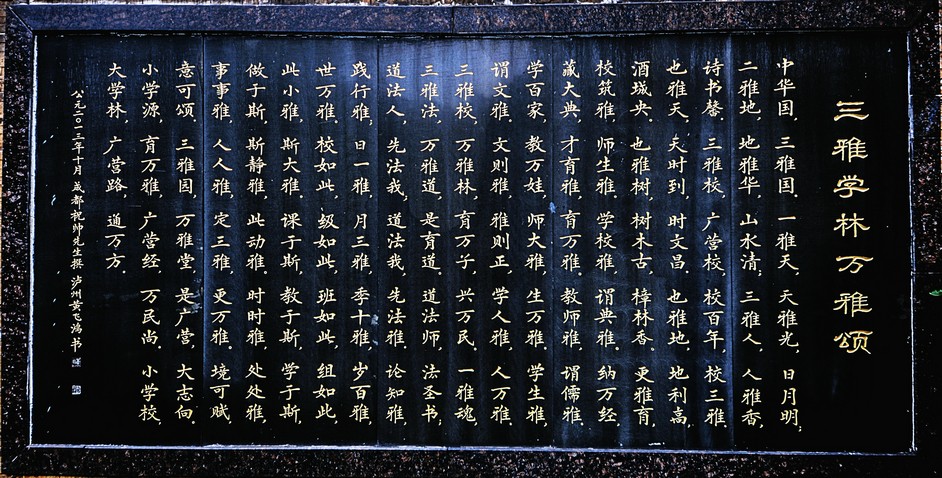 三雅学林万雅颂
中华国，三雅国。一雅天，天雅光，日月明；
二雅地，地雅华，山水清；三雅人，人雅香，
诗书馨。三雅校，广营校，校百年，校三雅。
也雅天，天时到，时文昌。也雅地，地利高，
酒城央。也雅树，树木古，樟林香。更雅育，
校筑雅。师生雅，学校雅，谓典雅。纳万经，
藏大典，才育雅，育万雅。教师雅，谓儒雅。
学百家，教万娃，师大雅，生万雅。学生雅，
谓文雅。文则雅，雅则正，学人雅，人万雅。
三雅校，万雅林，育万子，兴万民，一雅魂，
三雅法，万雅道，是育道。道法师，法圣书，
道法人，先法我，道法我，先法雅，论知雅，
践行雅，日一雅，月三雅，季十雅，岁百雅，
世万雅。校如此，级如此，班如此，组如此，
此小雅，斯大雅。课于斯，教于斯，学于斯，
做于斯，斯静雅，此动雅。时时雅，处处雅，
事事雅，人人雅，定三雅，更万雅。境可赋，
意可颂，三雅园，万雅堂，是广营，大志向，
小学源，育万雅，广营经，万民尚，小学校，
大学林，广营路，道万方。
公元二〇一三年十月 成都祝帅先生撰 泸州黄飞鸿书